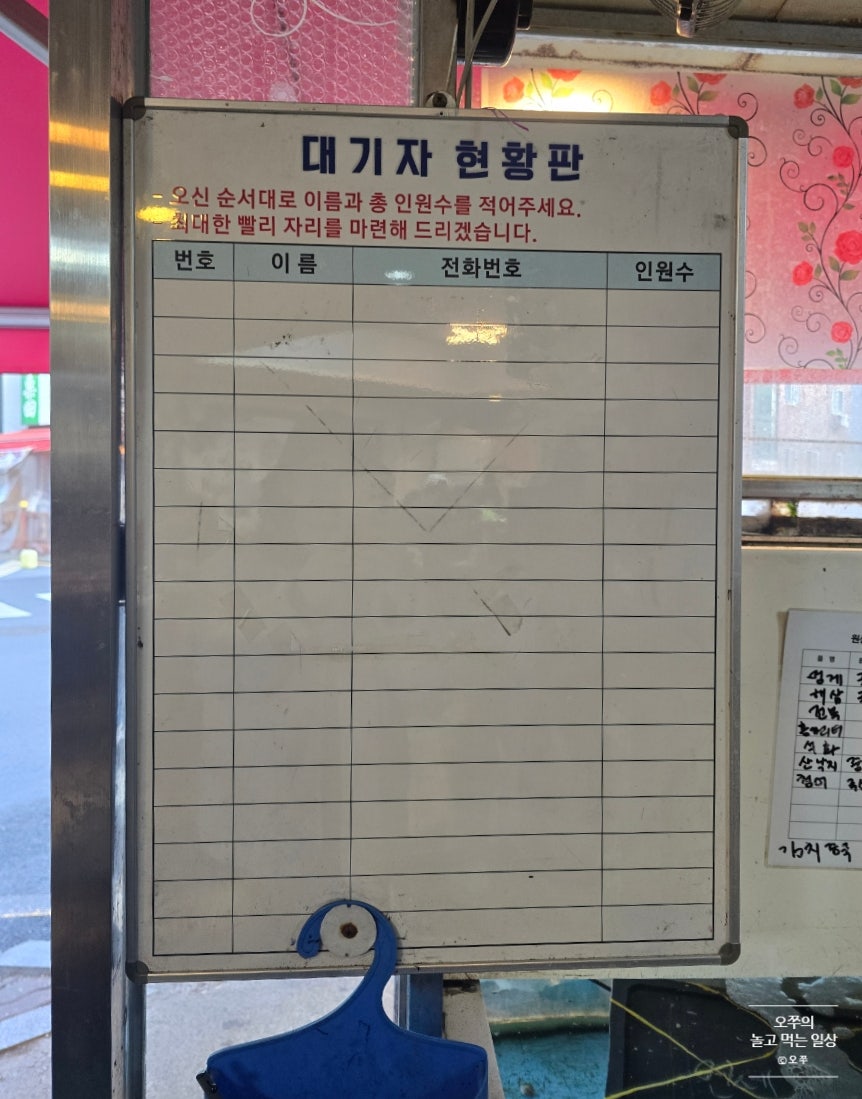 대기자 현황판
- 오신 순서대로 이름과 총 인원수를 적어주세요.
- 최대한 빨리 자리를 마련해 드리겠습니다.
번호 이름 전화번호 인원수
품명
멍게
해삼
전복
석화
산낙지
김치 중국
오쭈의
놀고 먹는 일상
©오쭈